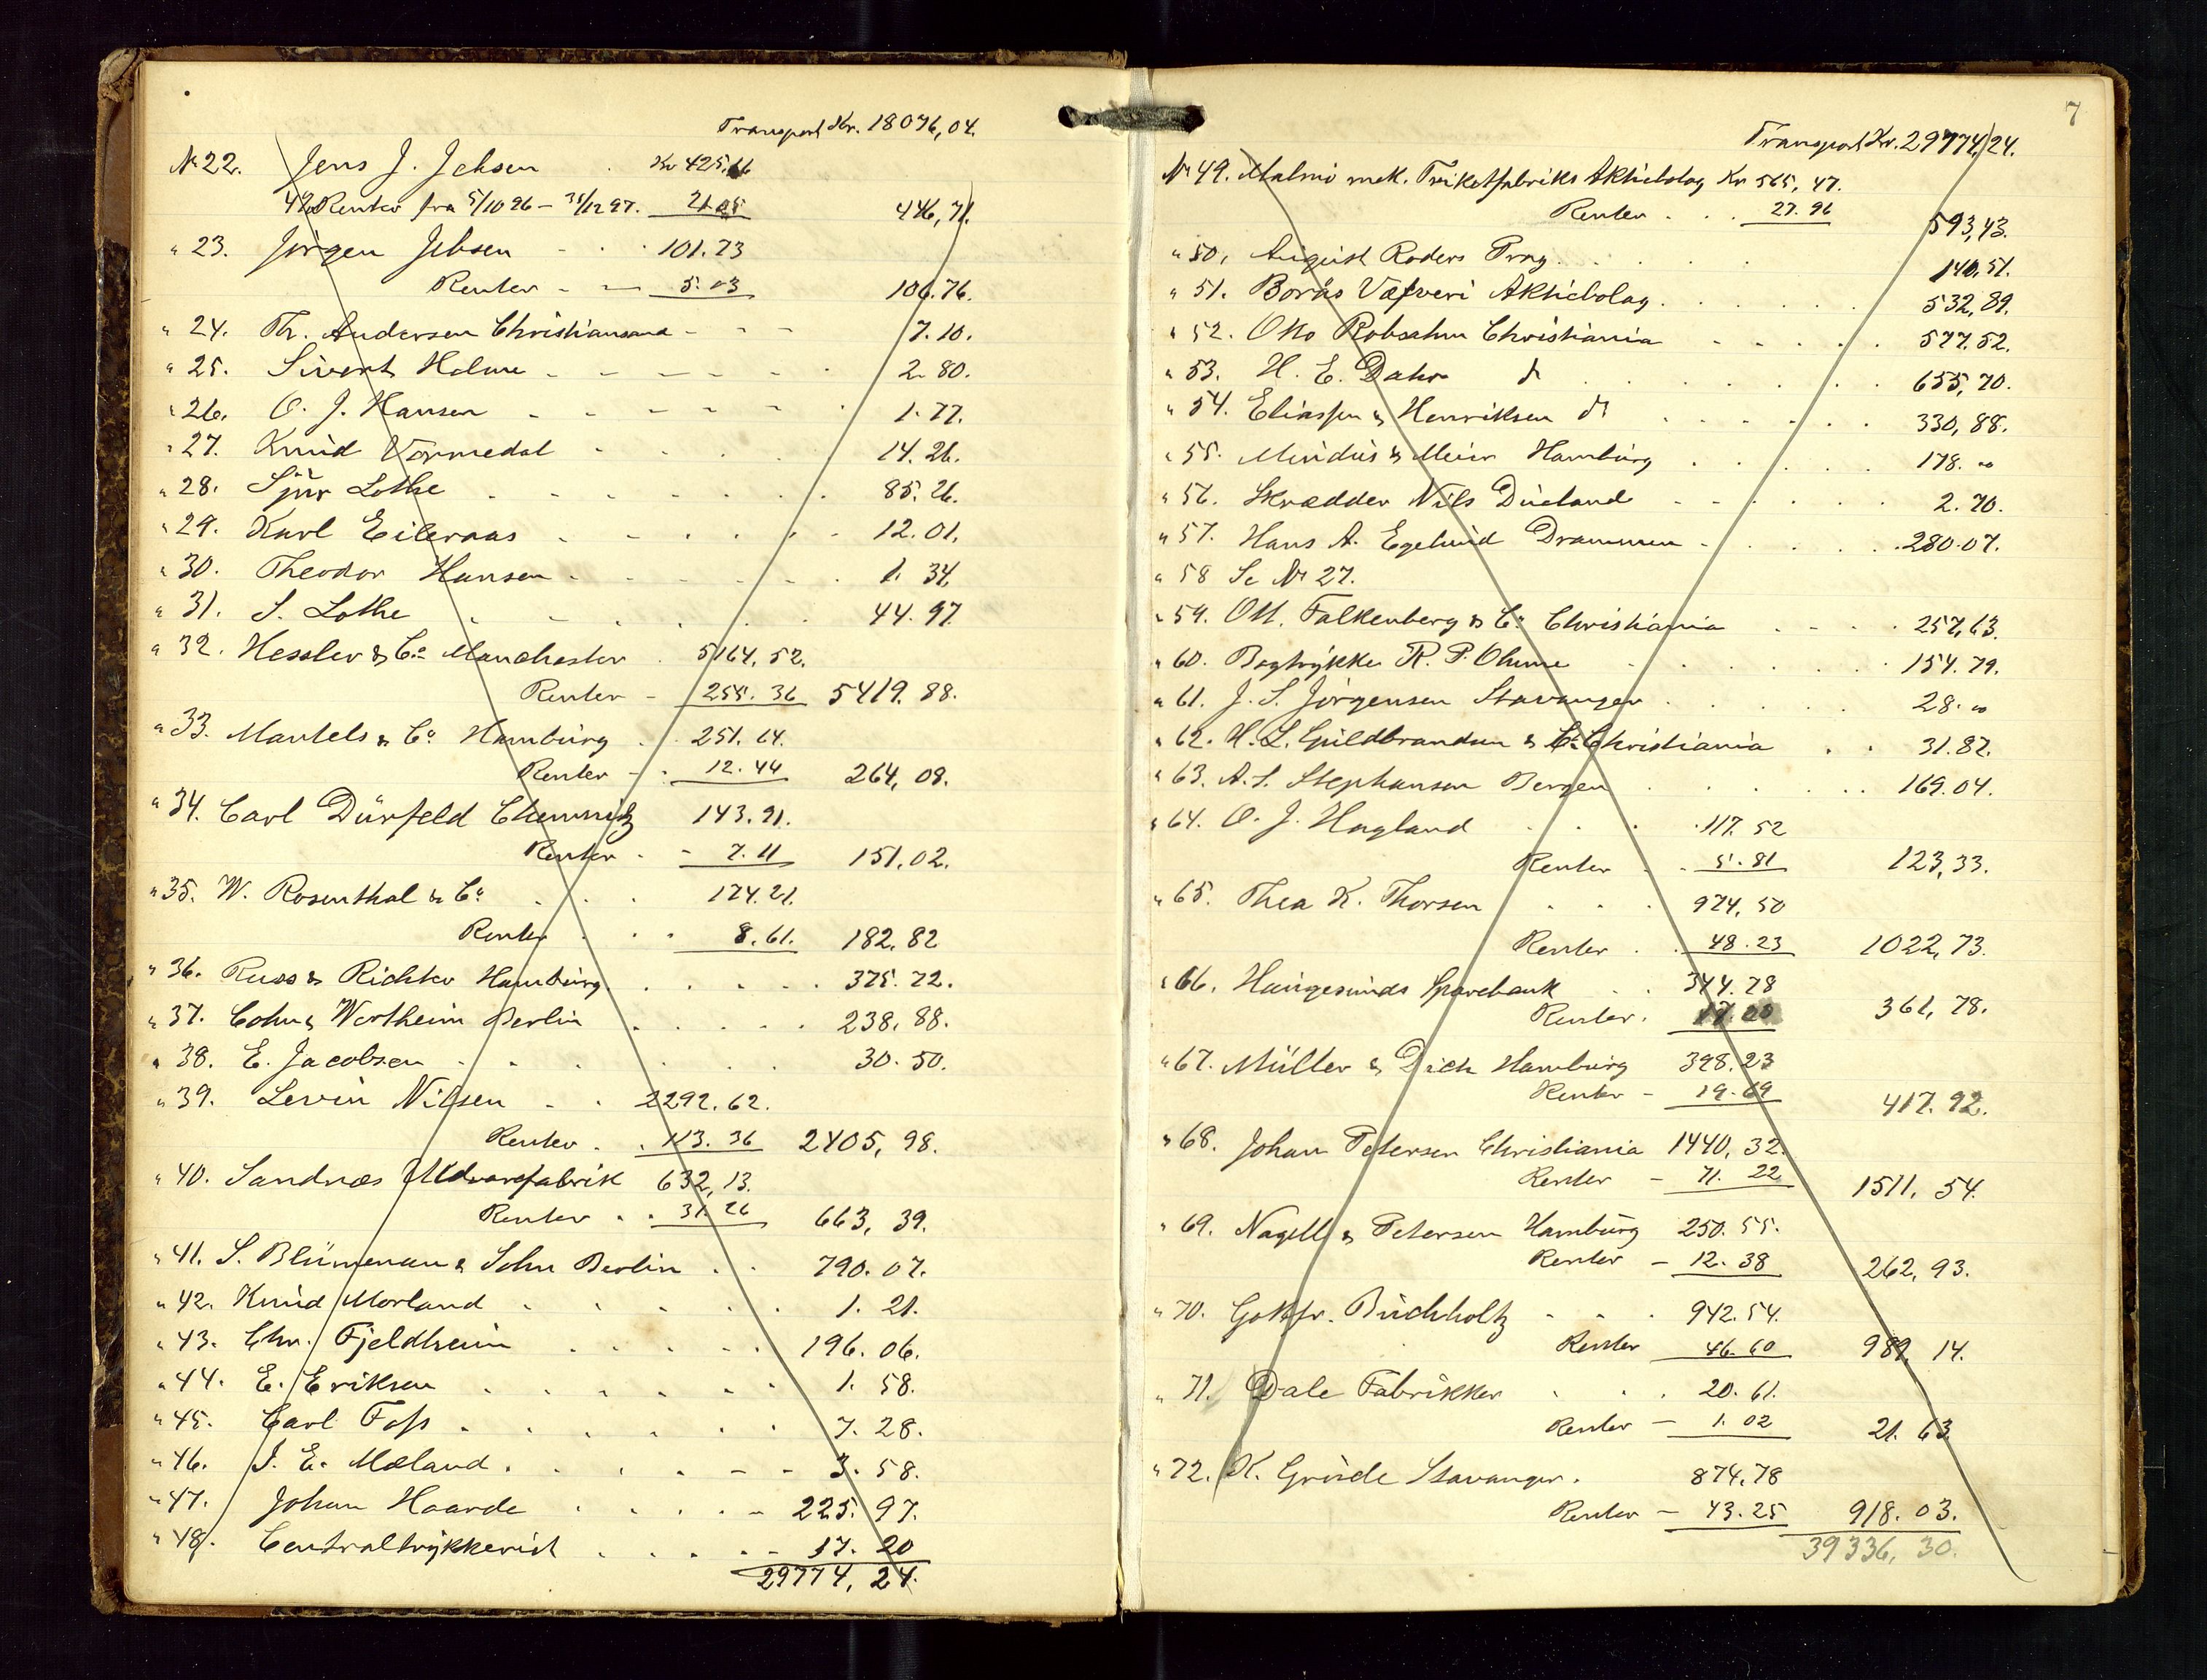 Transport Kr. 18076,04.
No 22. Jens J. Jebsen . Kr 425.66
4% Renter fra 5/10 96 – 31/12 97. 21.05 446,71.
" 23. Jörgen Jebsen - . . 101.73
Renter - - 5.03 106.76.
" 24. Th. Andersen Christianssand - - - 7.10.
" 25. Sivert Holme - - - - - - 2.80.
" 26. O. J. Hansen - - - - - . 1.77.
" 27. Knud Vormedal . . . . . 14.26.
" 28. Sjur Lothe . . . . . . . 85.26.
" 29. Karl Eileraas . . . . . . . 12.01.
" 30. Theodor Hansen . . . . . . 1.34.
" 31. S. Lothe . . . . . . 44.97.
" 32. Hessler & Co Manchester . 5164,52.
Renter - 255.36 5419.88.
" 33. Mantels & Co Hamburg . . 251.64.
Renter - . 12.44 264,08.
" 34. Carl Dürfeld Chemnitz 143.91.
Renter . - 7.11 151,02.
" 35. W. Rosenthal & Co . . . 174.21.
Renter . . . 8.61. 182,82
" 36. Russ & Richter Hamburg. . . . . . 375.72.
" 37. Cohn & Wertheim Berlin . . . . . 238,88.
" 38. E. Jacobsen . . . . . . 30.50.
" 39. Levin Nilsen - . 2292.62.
Renter . . 113.36 2405,98.
" 40. Sandnæs Uldvarefabrik 632,13.
Renter . . 31.26 663,39.
" 41. S. Blumenau & Sohn Berlin . . 790.07.
" 42. Knud Morland . . . . . 1.21.
" 43. Chr. Fjeldheim . . . . . 196.06.
" 44. E. Eriksen . . . . . . 1.58.
" 45. Carl Foss . . . . . . 7.28.
" 46. J. E. Mæland . . . . - - 3.58.
" 47. Johan Haarde . . . . - 225.97.
" 48. Centraltrykkeriet . . . . - 17.20
29774,24.
7
Transport Kr. 29774,24.
No 49. Malmö mek. Trikotfabriks Aktiebolag Kr 565,47.
Renter . . . 27.96 593,43.
" 50, August Roders Prag . . . . . 140,51.
" 51. Borås Väfveri Aktiebolag . . . . . . 532,89.
" 52. Otto Robsahm Christiania - - . . . 577.52.
" 53. H. E. Dahr do . . . . . . . 655,70.
" 54. Eliassen & Henriksen do . . . . . . 330,88.
" 55. Mindus & Meier Hamburg . . . . . 178. "
" 56. Skrædder Nils Dueland - - - . . . 2.70.
" 57. Hans A. Egelund Drammen - . . . . . 280.07.
" 58 Se No 27.
" 59. Ott. Falkenberg & Co Christiania . . . . 257,63.
" 60. Bogtrykker R. P. Ohme . . . . . . 154.79.
" 61. J. S. Jörgensen Stavanger . . . . . 28. "
" 62. H. L. Guldbrandsen & Co Christiania . . 31.87.
" 63. A. S. Stephansen Bergen . . . . . . 169.04.
" 64. O. J. Hagland . . . . 117.52
Renter . . 5.81 123,33.
" 65. Thea K. Thorsen . . . 974,50
Renter . . 48.23 1022,73.
" 66. Haugesunds Sparebank . . 344.78
Renter . 17.00 361,78.
" 67. Müller & Dich Hamburg 398,23
Renter - 19.69 417.92.
" 68. Johan Petersen Christiania 1440,32.
Renter - 71.22 1511,54.
" 69. Nagell & Petersen Hamburg 250.55.
Renter - 12.38 262,93.
" 70. Gottfr. Buchholtz - . . 942.54.
Renter 46.60 989.14.
" 71. Dale Fabrikker . . . 20.61.
Renter - 1.02 21.63
" 72. K. Grude Stavanger . 874,78
Renter - 43.25 918.03.
39336,30.